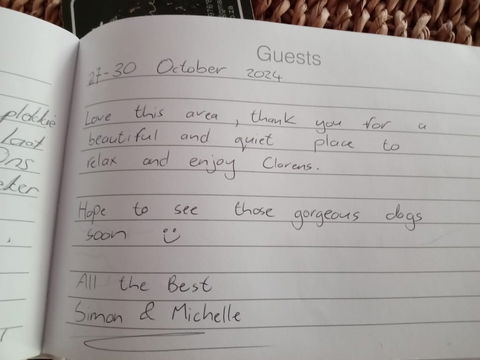 Guests
27-30 October 2024
Love this area, thank you for a
beautiful and quiet place to
relax and enjoy Clarens.
Hope to see those gorgeous dogs
soon :)
All the Best
Simon & Michelle